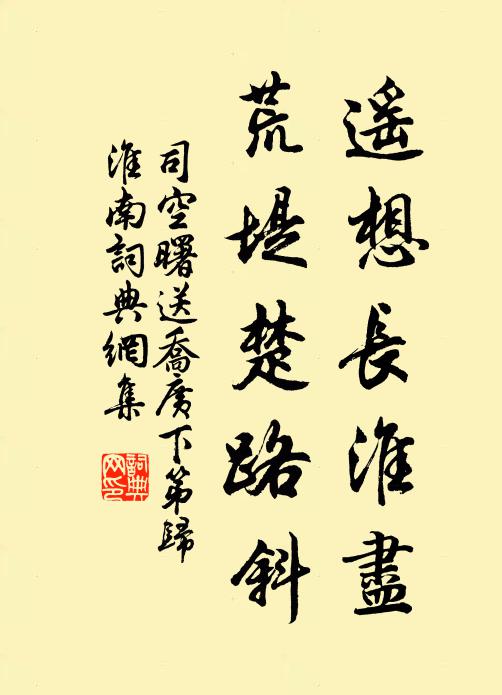 遥想長淮盡
荒堤楚路斜
司空曙送喬廣下第歸
淮南詞典網集
詞典
网印